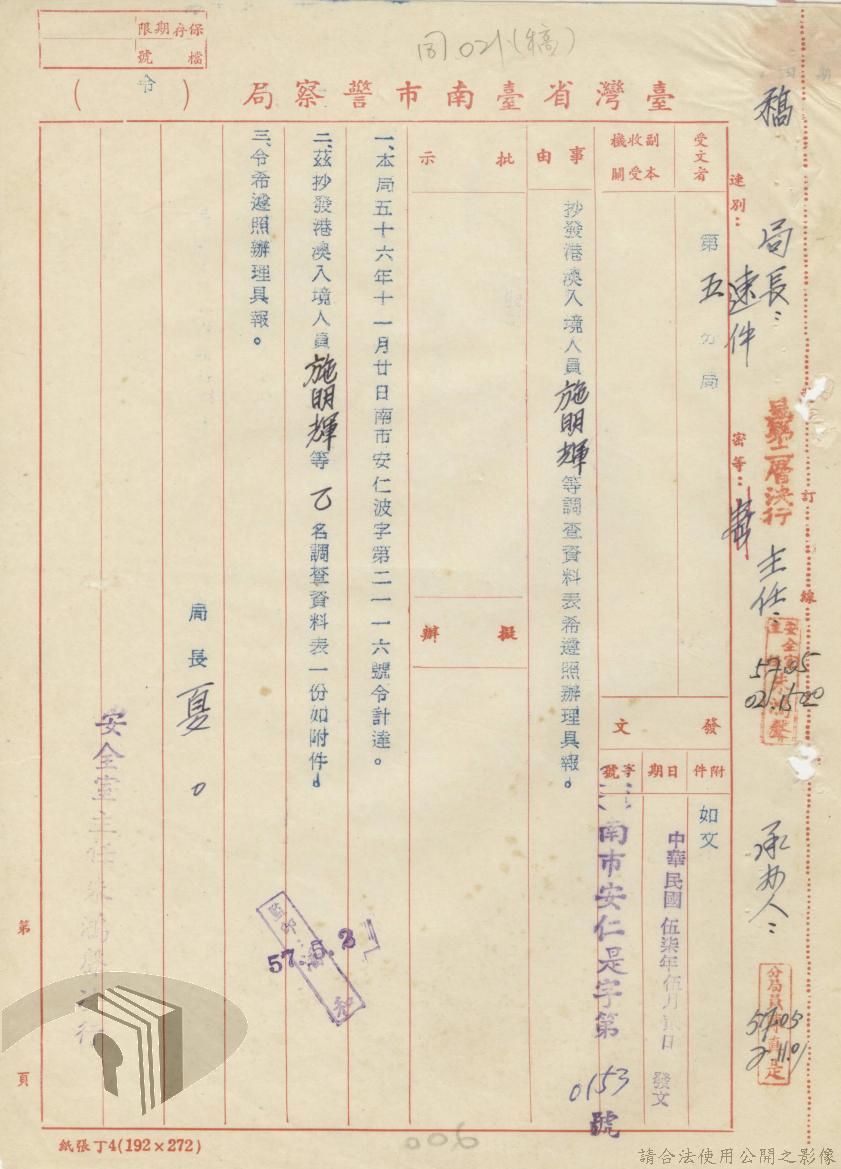 保存期限
檔號
同021(稿)
臺灣省臺南市警察局
(令)
稿
局長：
主任：
承办人：
授權第二層決行
安全室
5705
02.1500
5705
2.1101
訂
線
速別：
速件
密等：
密
受文者
第五分局
副本
收受
機關
發文
附件
如文
日期
中華民國伍柒年伍月 日
發文
字號
南市安仁是字第0153號
事由
抄發港澳入境人員施明輝等調查資料表希遵照辦理具報。
批示
擬辦
一、本局五十六年十一月廿日南市安仁波字第二一一六號令計達。
二、茲抄發港澳入境人員施明輝等乙名調查資料表一份如附件。
三、令希遵照辦理具報。
局長夏。
安全室主任朱鴻聲決行
監印
57.5.3
第
頁
紙張丁4(192×272)
006
請合法使用公開之影像